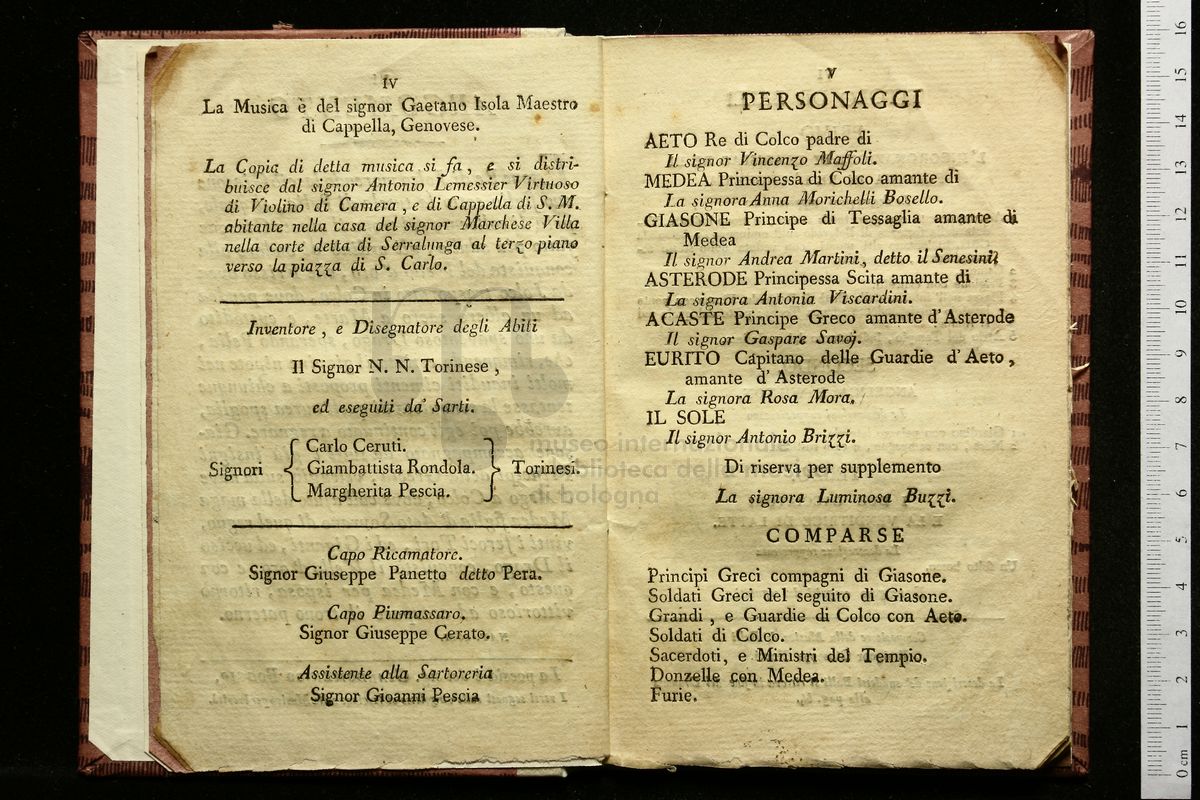 IV
La Musica è del signor Gaetano Isola Maestro
di Cappella, Genovese.
La Copia di detta musica si fa, e si distri-
buisce dal signor Antonio Lemessier Virtuoso
di Violino di Camera, e di Cappella di S. M.
abitante nella casa del signor Marchese Villa
nella corte detta di Serralunga al terzo piano
verso la piazza di S. Carlo.
Inventore, e Disegnatore degli Abiti
Il Signor N. N. Torinese,
ed eseguiti da' Sarti.
Carlo Ceruti.
Signori { Giambattista Rondola. } Torinesi.
Margherita Pescia.
Capo Ricamatore.
Signor Giuseppe Panetto detto Pera.
Capo Piumassaro.
Signor Giuseppe Cerato.
Assistente alla Sartoreria
Signor Gioanni Pescia
V
PERSONAGGI
AETO Re di Colco padre di
Il signor Vincenzo Maffoli.
MEDEA Principessa di Colco amante di
La signora Anna Morichelli Bosello.
GIASONE Principe di Tessaglia amante di
Medea
Il signor Andrea Martini, detto il Senesini
ASTERODE Principessa Scita amante di
La signora Antonia Viscardini.
ACASTE Principe Greco amante d'Asterode
Il signor Gaspare Savoj.
EURITO Capitano delle Guardie d'Aeto,
amante d'Asterode
La signora Rosa Mora.
IL SOLE
Il signor Antonio Brizzi.
Di riserva per supplemento
La signora Luminosa Buzzi.
COMPARSE
Principi Greci compagni di Giasone.
Soldati Greci del seguito di Giasone.
Grandi, e Guardie di Colco con Aeto.
Soldati di Colco.
Sacerdoti, e Ministri del Tempio.
Donzelle con Medea.
Furie.
museo internazionale
biblioteca della
di bologna
0 cm 1 2 3 4 5 6 7 8 9 10 11 12 13 14 15 16